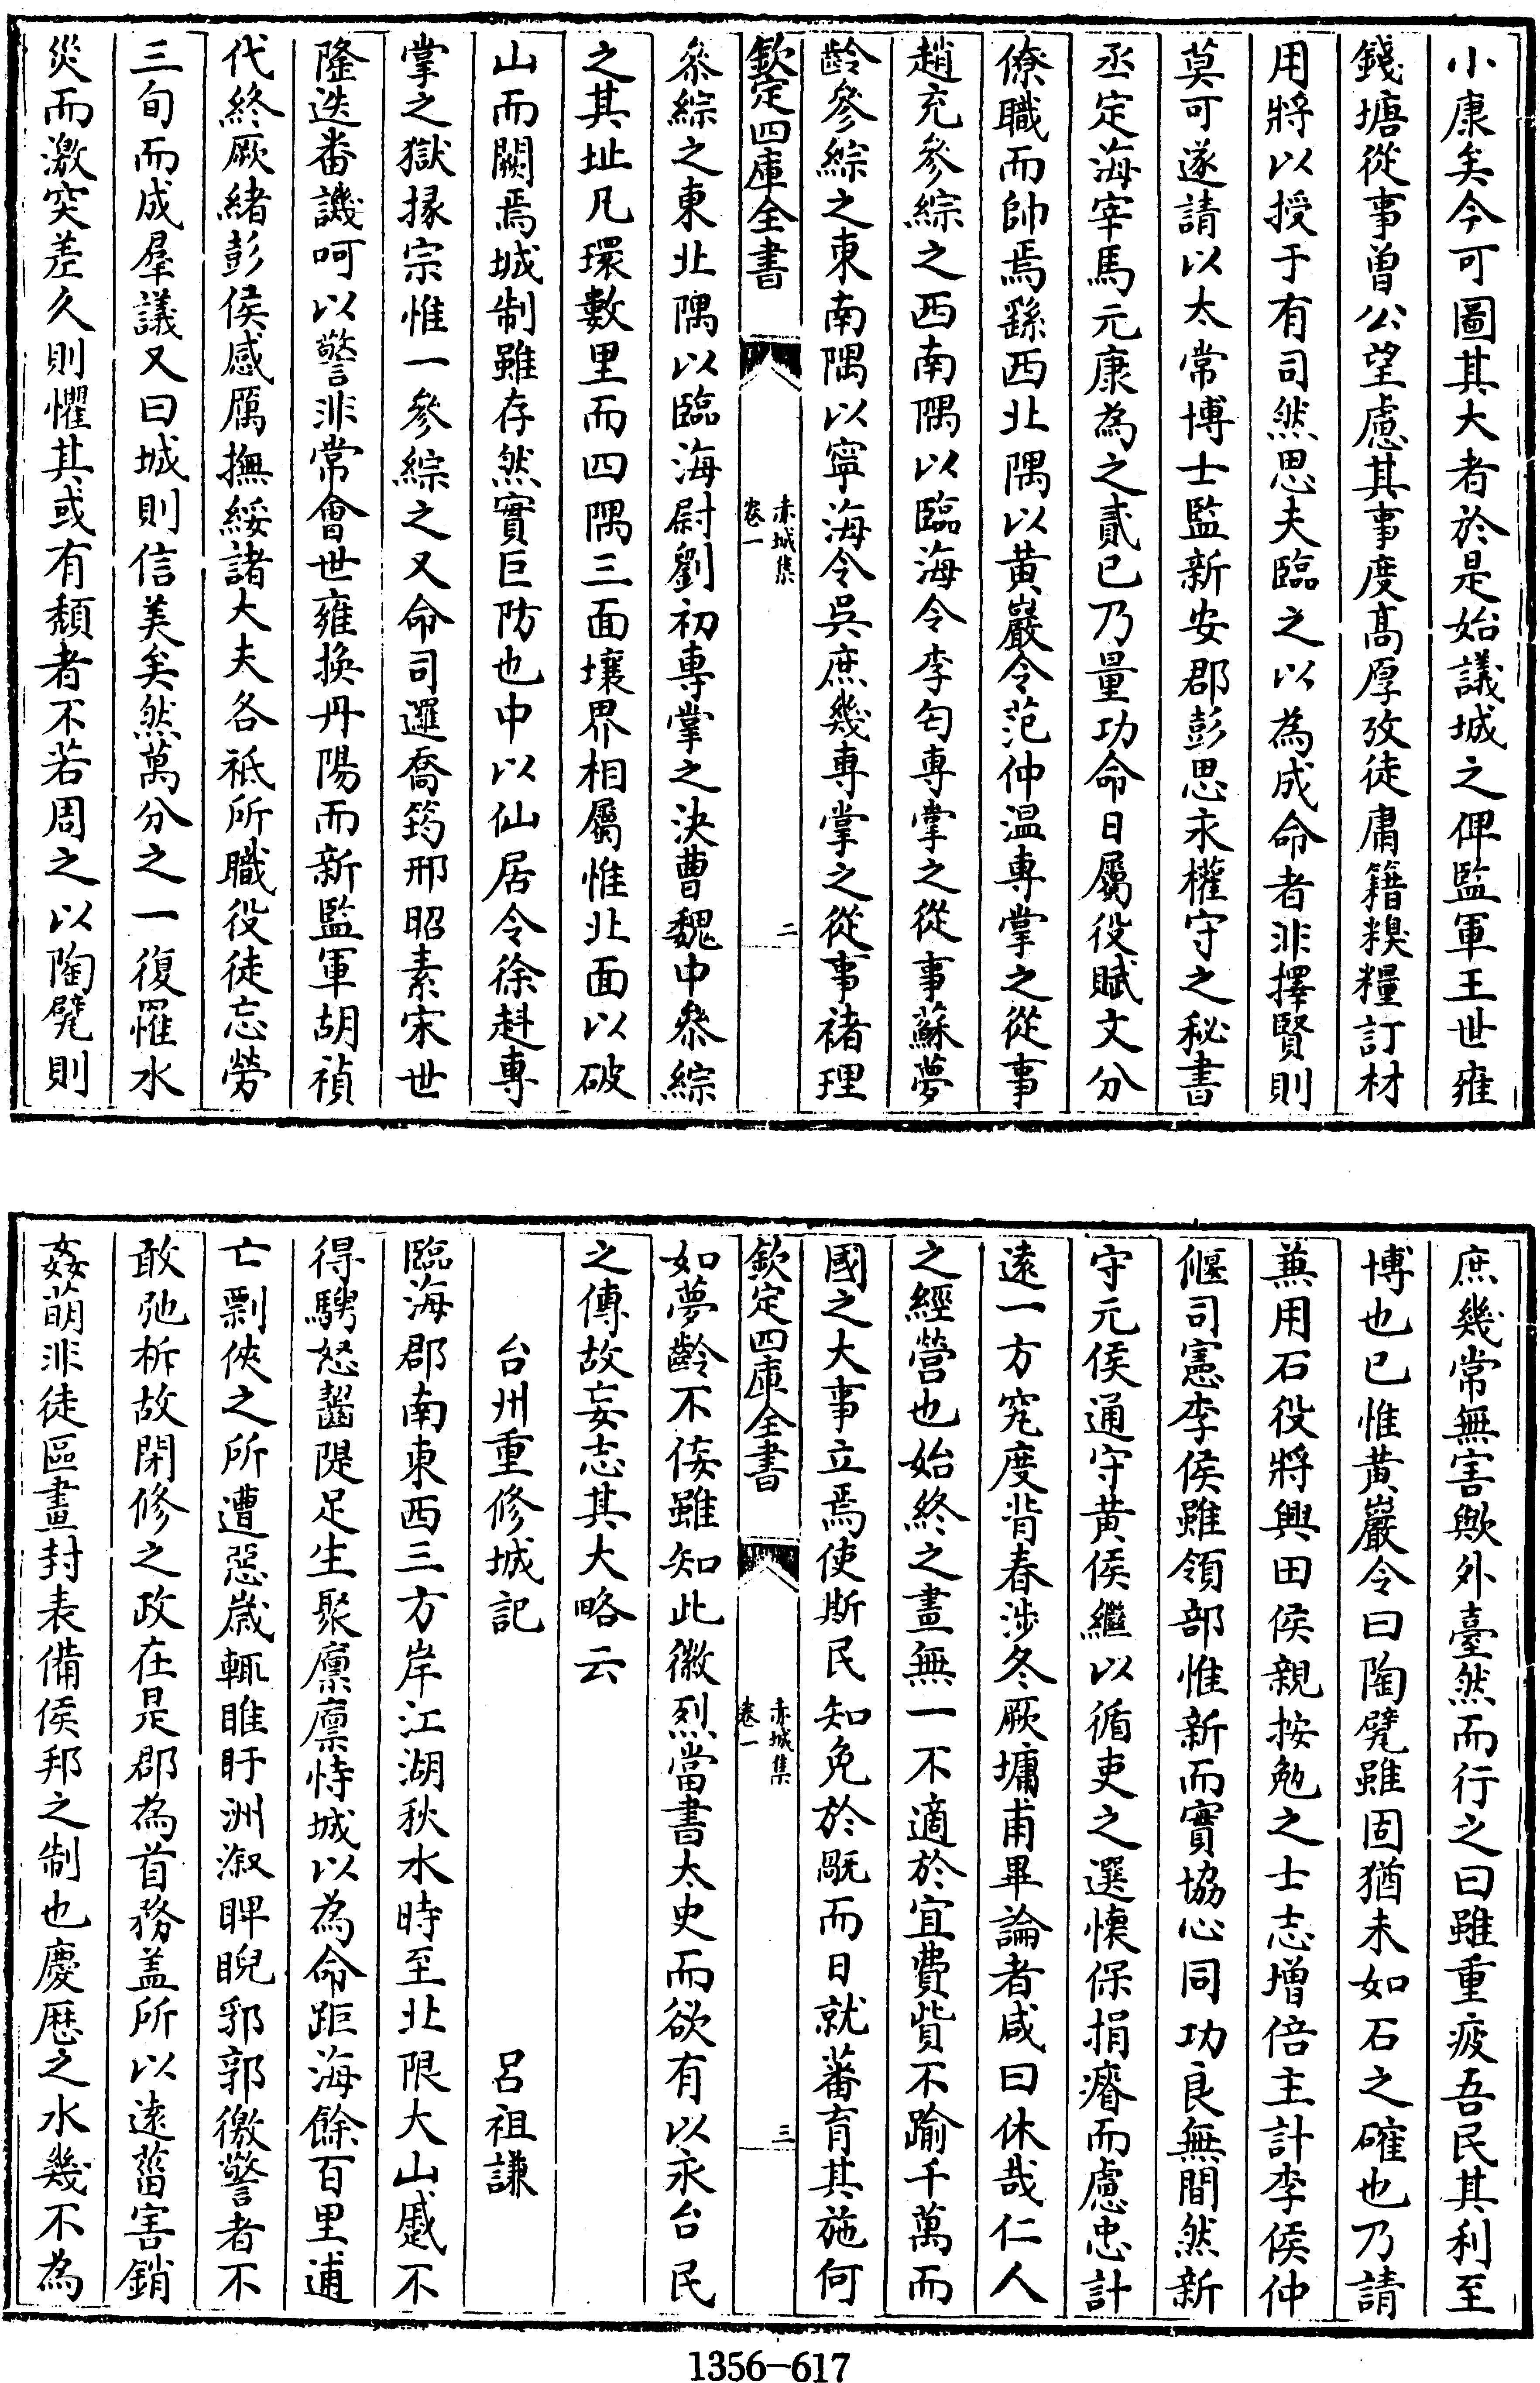 小康矣今可圖其大者於是始議城之俾監軍王世雍
錢塘從事曾公望慮其事度髙厚攷徒庸籍糗糧訂材
用將以授于有司然思夫臨之以為成命者非擇賢則
莫可遂請以太常博士監新安郡彭思永權守之秘書
丞定海宰馬元康為之貳已乃量功命日屬役賦文分
僚職而帥焉繇西北隅以黃巖令范仲温專掌之從事
趙充參綜之西南隅以臨海令李匄專掌之從事蘇夢
齡參綜之東南隅以寧海令吳庶幾專掌之從事褚理
欽定四庫全書
赤城集
卷一
二
叅綜之東北隅以臨海尉劉初專掌之決曹魏中叅綜
之其址凡環數里而四隅三面壤界相屬惟北面以破
山而闕焉城制雖存然實巨防也中以仙居令徐赳專
掌之獄掾宗惟一參綜之又命司邏喬筠邢昭素宋世
隆迭番譏呵以警非常會世雍換丹陽而新監軍胡禎
代終厥緒彭侯感厲撫綏諸大夫各祗所職役徒忘勞
三旬而成羣議又曰城則信美矣然萬分之一復罹水
災而激突差久則懼其或有頽者不若周之以陶甓則
庶幾常無害歟外臺然而行之曰雖重疲吾民其利至
博也已惟黃巖令曰陶甓雖固猶未如石之確也乃請
兼用石役將興田侯親按勉之士志增倍主計李侯仲
偃司憲李侯雖領部惟新而實協心同功良無間然新
守元侯通守黃侯繼以循吏之選懷保捐瘠而慮忠計
遠一方究度背春涉冬厥墉甫畢論者咸曰休哉仁人
之經營也始終之畫無一不適於宜費貲不踰千萬而
國之大事立焉使斯民知免於䞇而日就蕃育其施何
欽定四庫全書
赤城集
卷一
三
如夢齡不佞雖知此徽烈當書太史而欲有以永台民
之傳故妄志其大略云
台州重修城記 呂祖謙
臨海郡南東西三方岸江湖秋水時至北限大山蹙不
得騁怒齧隄足生聚廩廩恃城以為命距海餘百里逋
亡剽俠之所遭惡歲輒睢盱洲溆睥睨郛郭徼警者不
敢弛柝故閉修之政在是郡為首務盖所以遠菑害銷
姦萌非徒區畫封表備侯邦之制也慶厯之水幾不為
1356-617